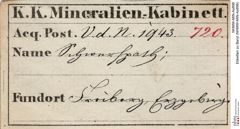 K.K. Mineralien-Kabinett.
Acq. Post. V.d.N. 1943. 720.
Name Schwerspath;
Fundort: Freiberg, Erzgebirg.